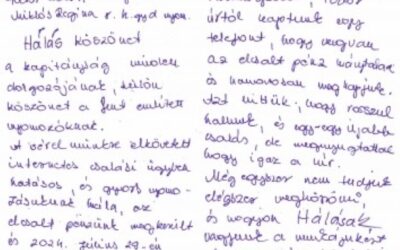 Miklós Regina r. h. gyd nyom.
Hálás köszönet
a kapitányság minden
dolgozójának, külön
köszönet a fent említett
nyomozóknak.
A vérel münkre elkövetett
internetes csalási ügyben
hatásos, és gyors nyomo-
zásuknak hála, az
elcsalt pénzünk megkerült
és 2024. június 29-én
úrtól kaptunk egy
telefont, hogy megvan
az elcsalt pénz hiánytalan
és hamarosan megkapjuk.
Azt hittük, hogy rosszul
hallunk, és egy-egy újabb
csalás, de megnyugtattak
hogy igaz a hír.
Még egyszer nem tudjuk
elégszer megköszönni,
és nagyon Hálásak
vagyunk a munkájukért